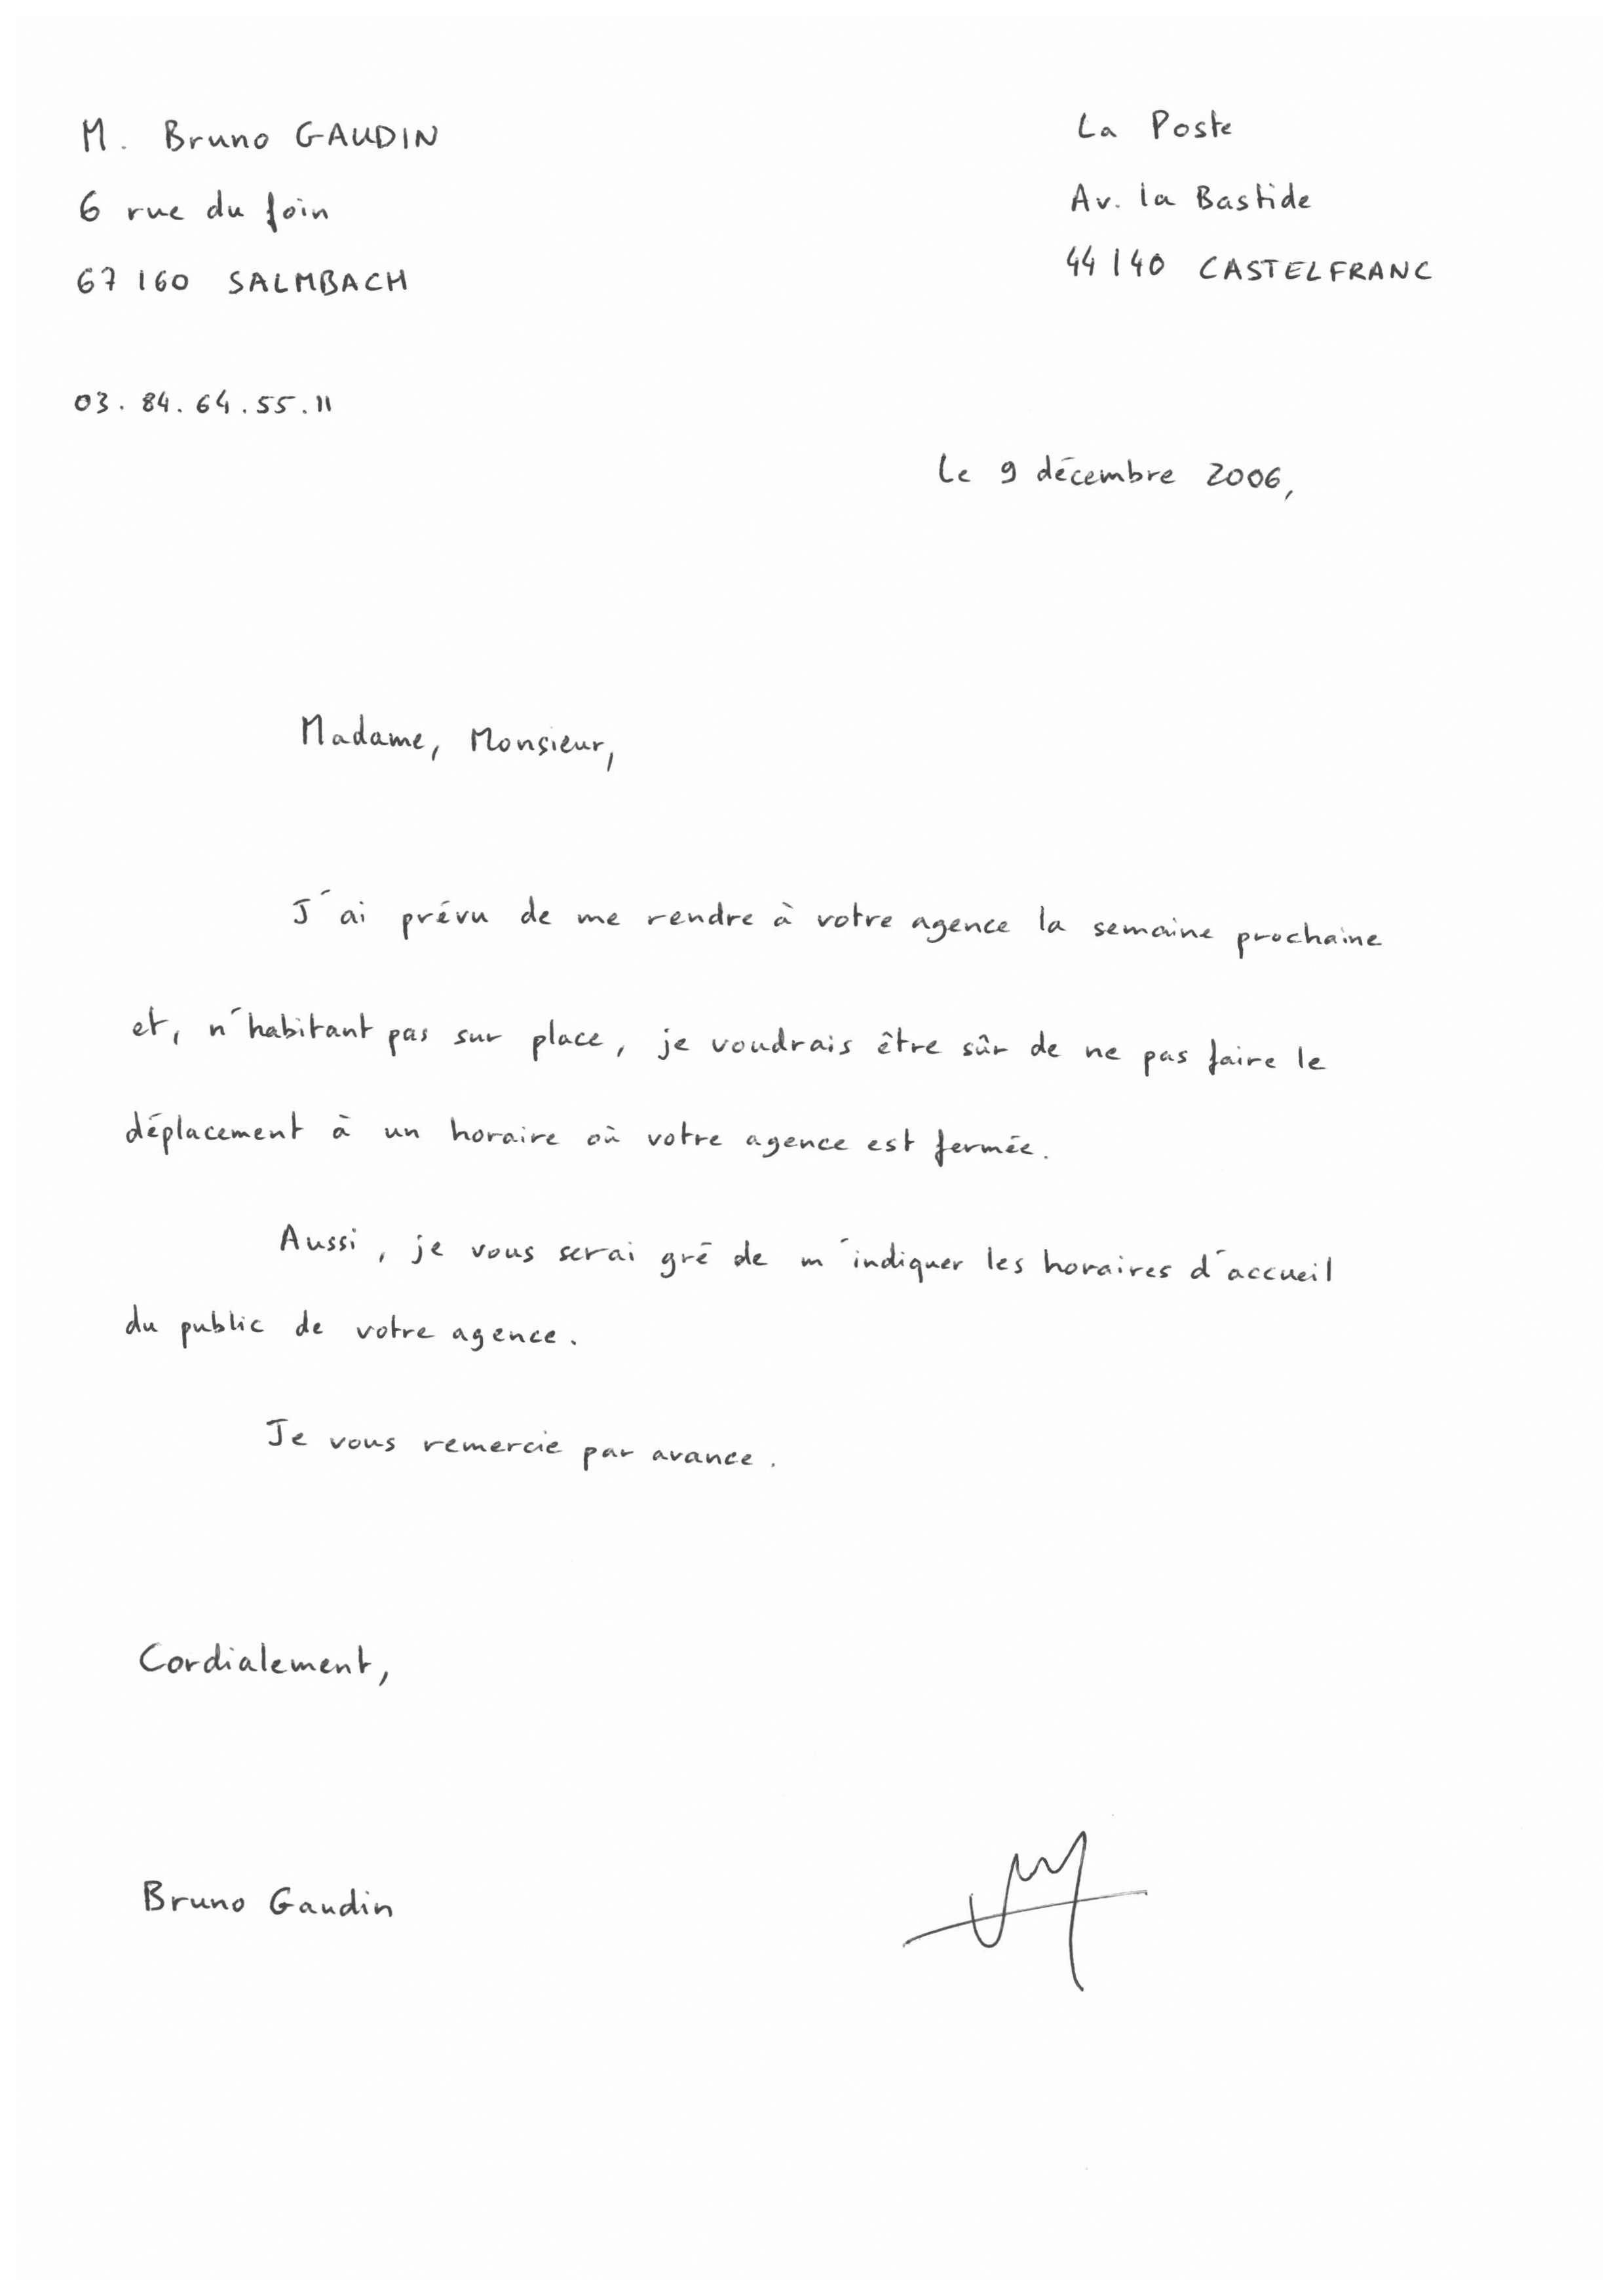 M. Bruno GAUDIN
6 rue du foin
67 160 SALMBACH
03. 84. 64. 55. 11
La Poste
Av. la Bastide
44 140 CASTELFRANC
le 9 décembre 2006,
Madame, Monsieur,
J'ai prévu de me rendre à votre agence la semaine prochaine
et, n'habitant pas sur place, je voudrais être sûr de ne pas faire le
déplacement à un horaire où votre agence est fermée.
Aussi, je vous serai gré de m'indiquer les horaires d'accueil
du public de votre agence.
Je vous remercie par avance.
Cordialement,
Bruno Gaudin